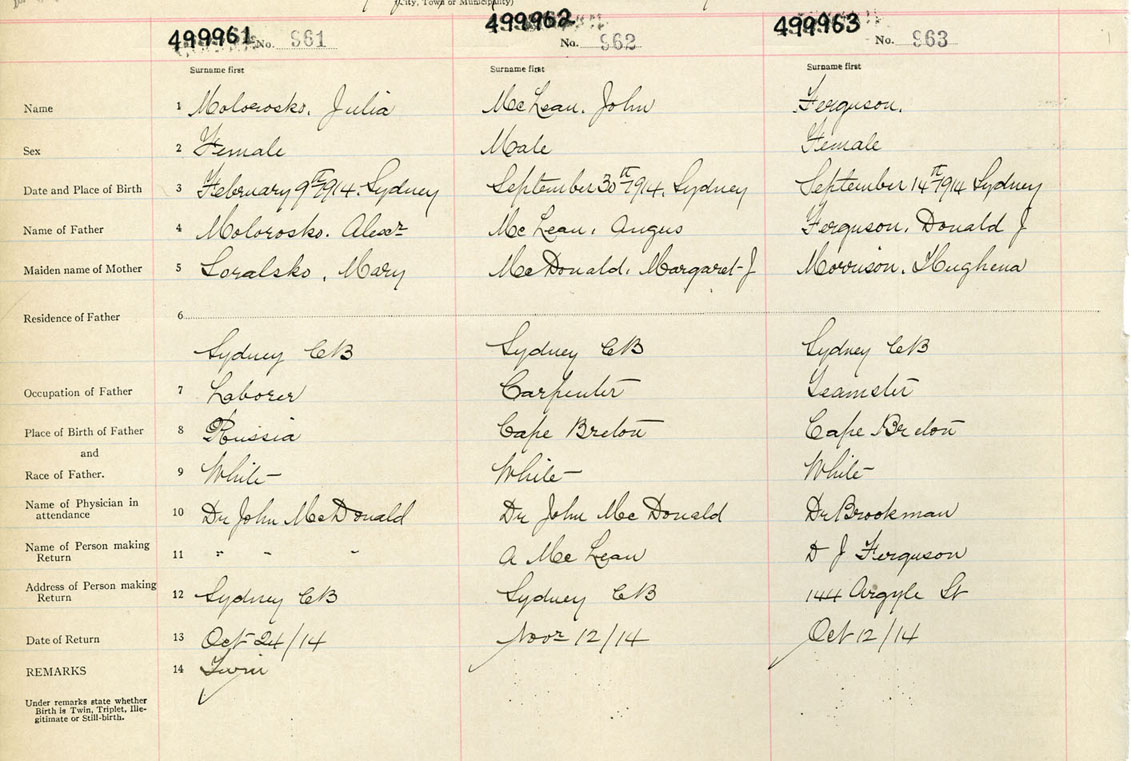 (City, Town or Municipality)
499961 No. 961 499962 No. 962 499963 No. 963
Surname first Surname first Surname first
Name 1 Molorosko. Julia McLean. John Ferguson.
Sex 2 Female Male Female
Date and Place of Birth 3 February 9th 1914. Sydney September 30th 1914. Sydney September 14th 1914 Sydney
Name of Father 4 Molorosko. Alexr McLean. Angus Ferguson. Donald J
Maiden name of Mother 5 Soralsko. Mary McDonald. Margaret J Morrison. Hughena
Residence of Father 6
Sydney CB Sydney CB Sydney CB
Occupation of Father 7 Laborer Carpenter Teamster
Place of Birth of Father 8 Russia Cape Breton Cape Breton
and
Race of Father. 9 White White White
Name of Physician in
attendance 10 Dr John McDonald Dr John McDonald Dr Brookman
Name of Person making
Return 11 " " " A McLean D J Ferguson
Address of Person making
Return 12 Sydney CB Sydney CB 144 Argyle St
Date of Return 13 Oct 24/14 Novr 12/14 Oct 12/14
REMARKS 14 Twin
Under remarks state whether
Birth is Twin, Triplet, Ille-
gitimate or Still-birth.